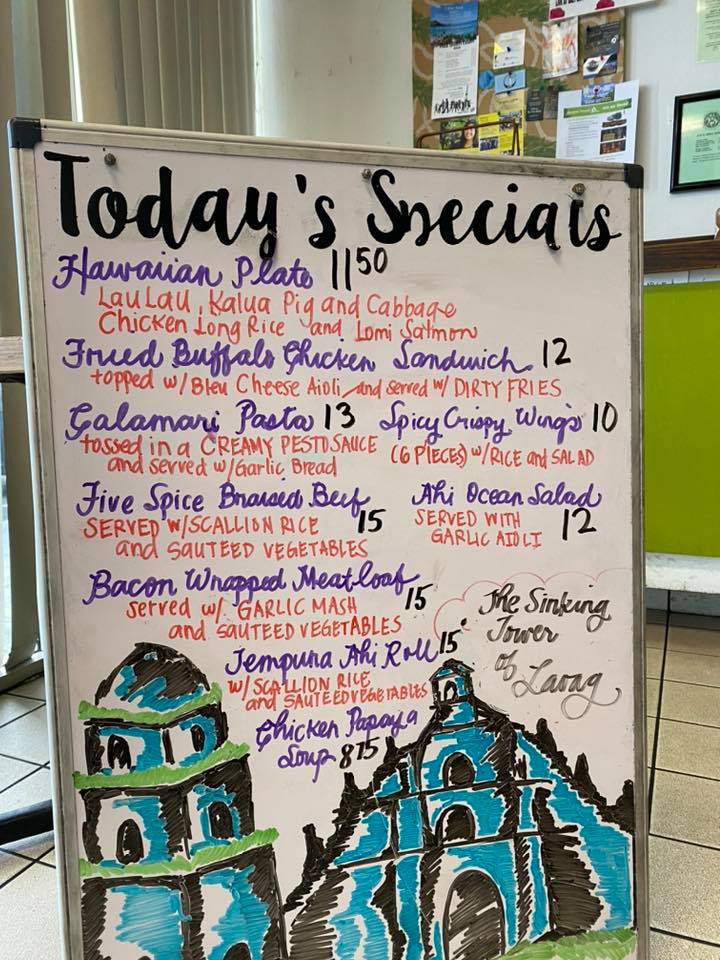 Today's Specials
Hawaiian Plate 11 50
Lau Lau, Kalua Pig and Cabbage
Chicken Long Rice and Lomi Salmon
Fried Buffalo Chicken Sandwich 12
topped w/ Bleu Cheese Aioli and served w/ DIRTY FRIES
Calamari Pasta 13
tossed in a CREAMY PESTO SAUCE
and served w/ Garlic Bread
Spicy Crispy Wings 10
(6 PIECES) w/ RICE and SALAD
Five Spice Braised Beef 15
SERVED W/ SCALLION RICE
and SAUTEED VEGETABLES
Ahi Ocean Salad 12
SERVED WITH
GARLIC AIOLI
Bacon Wrapped Meatloaf 15
served w/ GARLIC MASH
and SAUTEED VEGETABLES
Tempura Ahi Roll 15
w/ SCALLION RICE
and SAUTEED VEGETABLES
Chicken Papaya
Soup 8 75
The Sinking
Tower
of Laoag